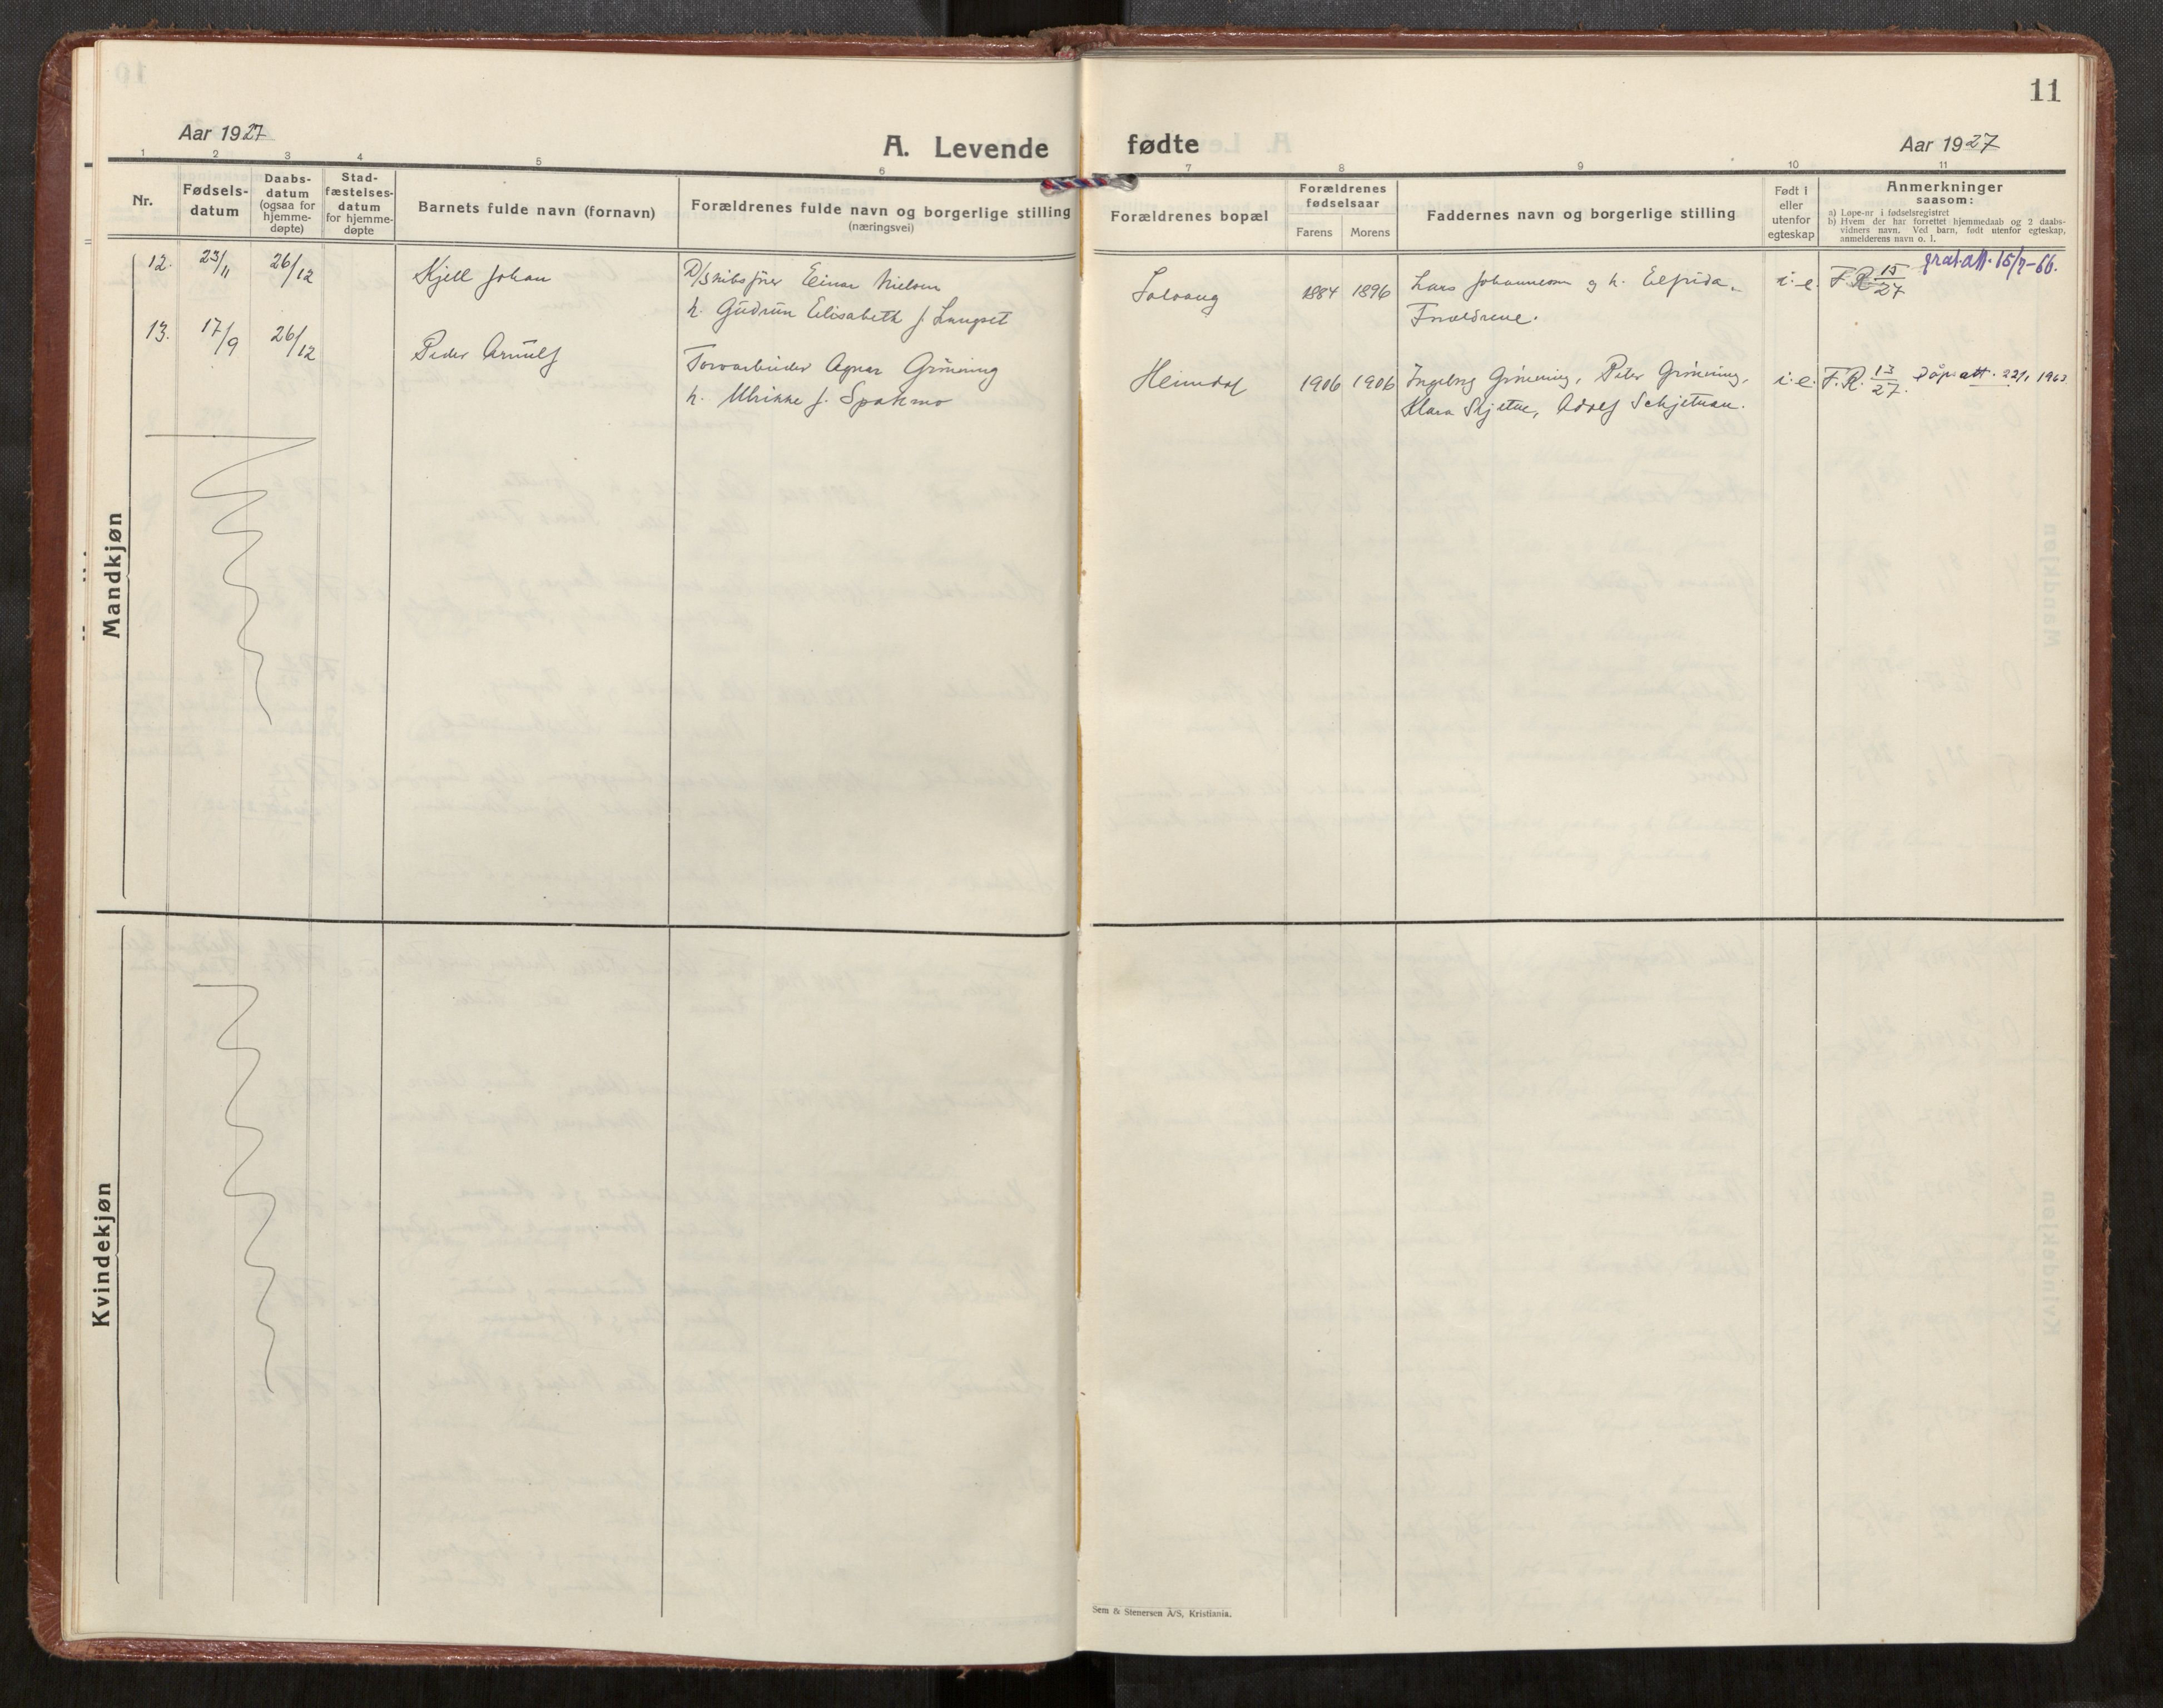 11
Aar 1927
A. Levende fødte
Aar 1927
1 2 3 4 5 6 7 8 9 10 11
Nr.
Fødsels-
datum
Daabs-
datum
(ogsaa for
hjemme-
døpte)
Stad-
fæstelses-
datum
for hjemme-
døpte
Barnets fulde navn (fornavn)
Forældrenes fulde navn og borgerlige stilling
(næringsvei)
Forældrenes bopæl
Forældrenes
fødselsaar
Farens Morens
Faddernes navn og borgerlige stilling
Født i
eller
utenfor
egteskap
Anmerkninger
saasom:
a) Løpe-nr i fødselsregistret
b) Hvem der har forrettet hjemmedaab og 2 daabs-
vidners navn. Ved barn, født utenfor egteskap,
anmelderens navn o. l.
Mandkjøn
12. 23/11 26/12 Kjell Johan D/Skibsfører Einar Nielsen
h. Gudrun Elisabeth f. Langset
Solvang 1884 1896 Lars Johannesen g h. Elfrida.
Forældrene.
i. e. F.R. 15/27 grat. att. 15/7-66.
13. 17/9 26/12 Peder Arnulf Torvarbeider Agnar Grønning
h. Ulrikke f. Spakmo
Heimdal 1906 1906 Ingebrg Grønning, Peter Grønning,
Klara Skjetne, Adolf Schjetnan.
i. e. F.R. 13/27. Dåp. att. 22/1 1963
Kvindekjøn
Sem & Stenersen A/S, Kristiania.